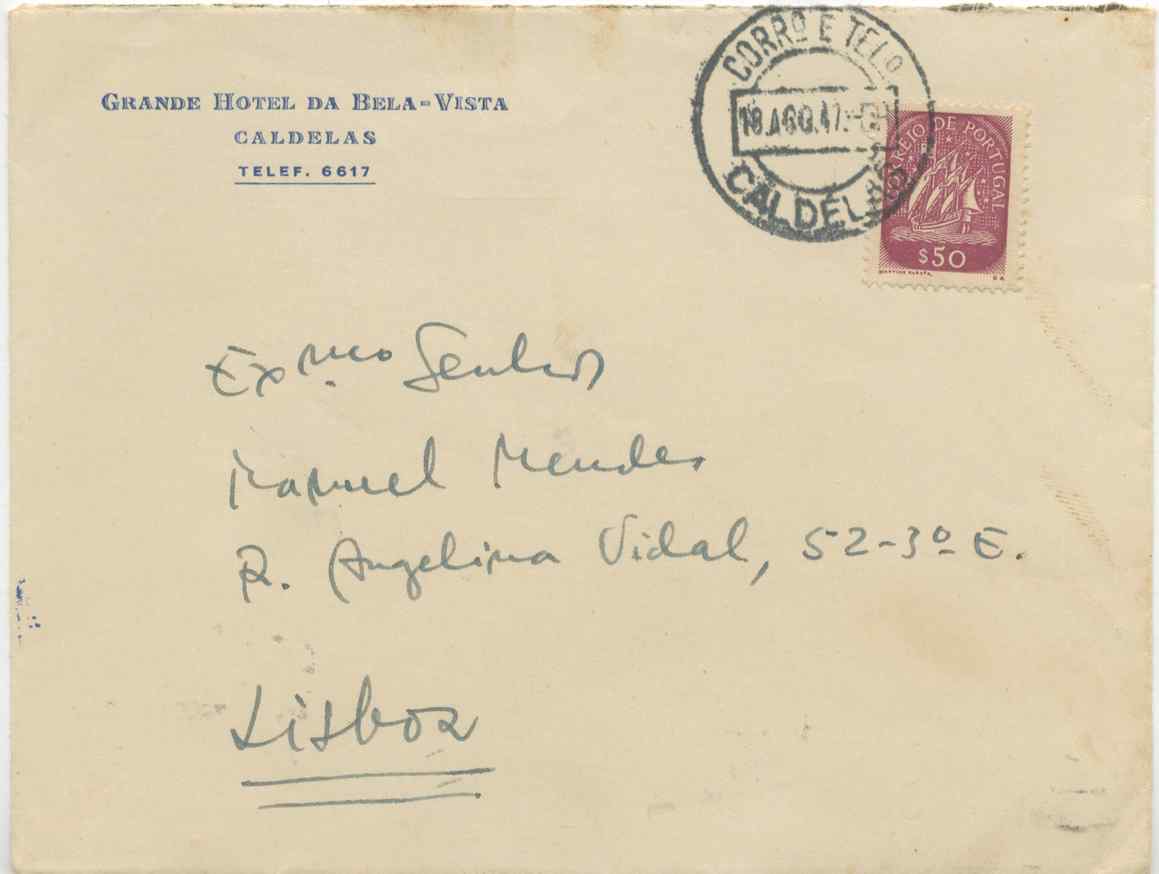 GRANDE HOTEL DA BELA-VISTA
CALDELAS
TELEF. 6617
CORRO E TELO
18.AGO.47
CALDELAS
CORREIO DE PORTUGAL
$50
Exmo Senhor
Manuel Mendes
R. Angelina Vidal, 52-3º E.
Lisboa